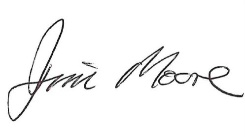 Jim Moore